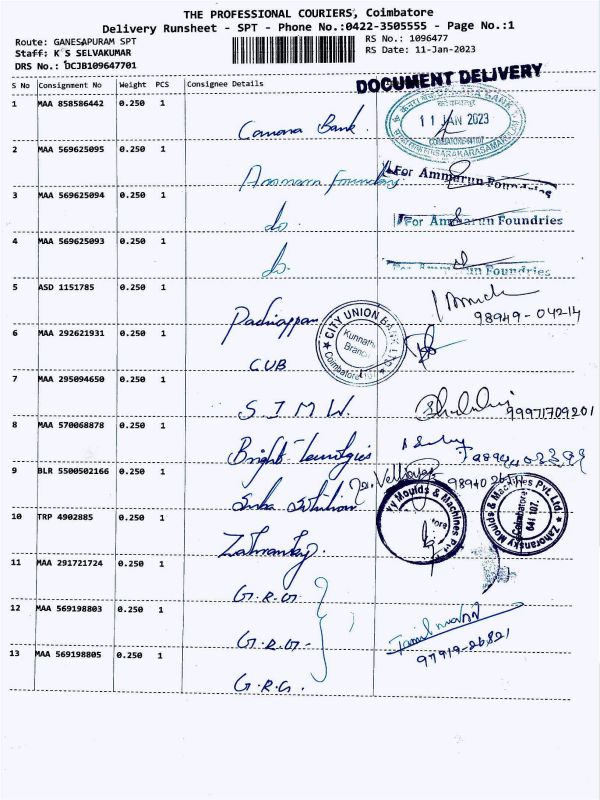 THE PROFESSIONAL COURIERS, Coimbatore
Delivery Runsheet - SPT - Phone No.:0422-3505555 - Page No.:1
Route: GANESAPURAM SPT
RS No.: 1096477
Staff: K S SELVAKUMAR
RS Date: 11-Jan-2023
DRS No.: DCJB109647701
DOCUMENT DELIVERY
S No Consignment No Weight PCS Consignee Details
1 MAA 858586442 0.250 1
Canara Bank.
11 JAN 2023
2 MAA 569625095 0.250 1
Ammarun Foundry
For Ammarun Foundries
3 MAA 569625094 0.250 1
do.
For Ammarun Foundries
4 MAA 569625093 0.250 1
do.
For Ammarun Foundries
5 ASD 1151785 0.250 1
Padiappan
98949-04214
6 MAA 292621931 0.250 1
CUB
CITY UNION BANK LTD
Kunnath
Branch
Coimbatore
7 MAA 295094650 0.250 1
S I M W.
99971709201
8 MAA 570068878 0.250 1
Bright
9 BLR 5500502166 0.250 1
98940
10 TRP 4902885 0.250 1
ky Moulds & Machines Pvt
Zahoransky Moulds & Machines Pvt. Ltd.
Coimbatore
641 107.
11 MAA 291721724 0.250 1
G.R.G
12 MAA 569198803 0.250 1
G.R.G-
97919-26821
13 MAA 569198805 0.250 1
G.R.G.